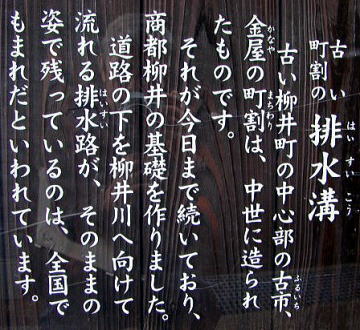 古い
町割の排水溝
古い柳井町の中心部の古市、
金屋の町割は、中世に造られ
たものです。
それが今日まで続いており、
商都柳井の基礎を作りました。
道路の下を柳井川へ向けて
流れる排水路が、そのままの
姿で残っているのは、全国で
もまれだといわれています。